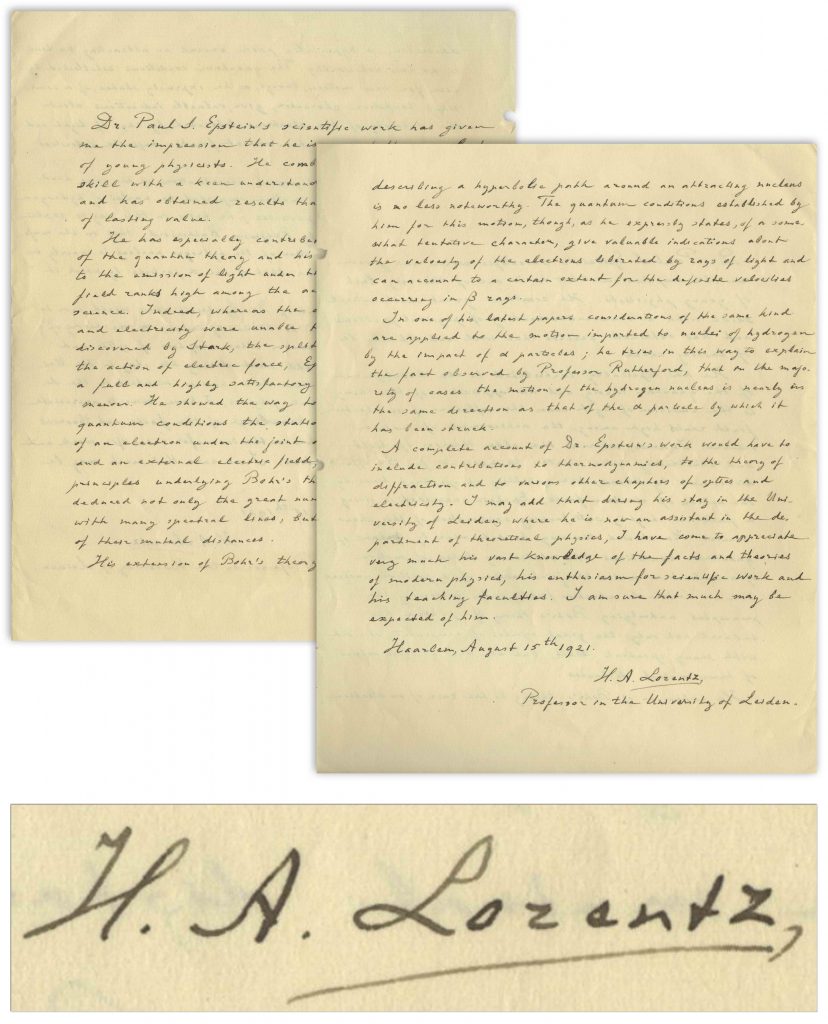 Dr. Paul S. Epstein's scientific work has given
me the impression that he is
of young physicists. He comb
skill with a keen understand
and has obtained results tha
of lasting value.
He has especially contribu
of the quantum theory and his
to the emission of light under
field ranks high among the
science. Indeed, whereas the
and electricity were unable
discovered by Stark, the split
the action of electric force, Ep
a full and highly satisfactory
manner. He showed the way to
quantum conditions the statio
of an electron under the joint
and an external electric field,
principles underlying Bohr's th
deduced not only the great num
with many spectral lines, but
of their mutual distances.
His extension of Bohr's theory
describing a hyperbolic path around an attracting nucleus
is no less noteworthy. The quantum conditions established by
him for this motion, though, as he expressly states, of a some-
what tentative character, give valuable indications about
the velocity of the electrons liberated by rays of light and
can account to a certain extent for the definite velocities
occurring in β rays.
In one of his latest papers considerations of the same kind
are applied to the motion imparted to nuclei of hydrogen
by the impact of α particles; he tries in this way to explain
the fact observed by Professor Rutherford, that in the majo-
rity of cases the motion of the hydrogen nucleus is nearly in
the same direction as that of the α particle by which it
has been struck.
A complete account of Dr. Epstein's work would have to
include contributions to thermodynamics, to the theory of
diffraction and to various other chapters of optics and
electricity. I may add that during his stay in the Uni-
versity of Leiden, where he is now an assistant in the de-
partment of theoretical physics, I have come to appreciate
very much his vast knowledge of the facts and theories
of modern physics, his enthusiasm for scientific work and
his teaching faculties. I am sure that much may be
expected of him.
Haarlem, August 15th 1921.
H. A. Lorentz,
Professor in the University of Leiden.
H. A. Lorentz,